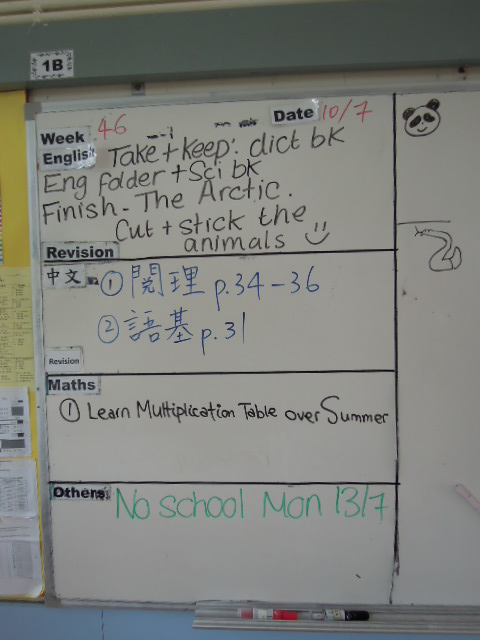 1B
Week 46
Date 10/7
English Take + keep: dict bk
Eng folder + Sci bk
Finish - The Arctic.
Cut + stick the
animals
Revision
中文 ① 閱理 p.34-36
② 語基 p.31
Revision
Maths
① Learn Multiplication Table over Summer
Others No school Mon 13/7